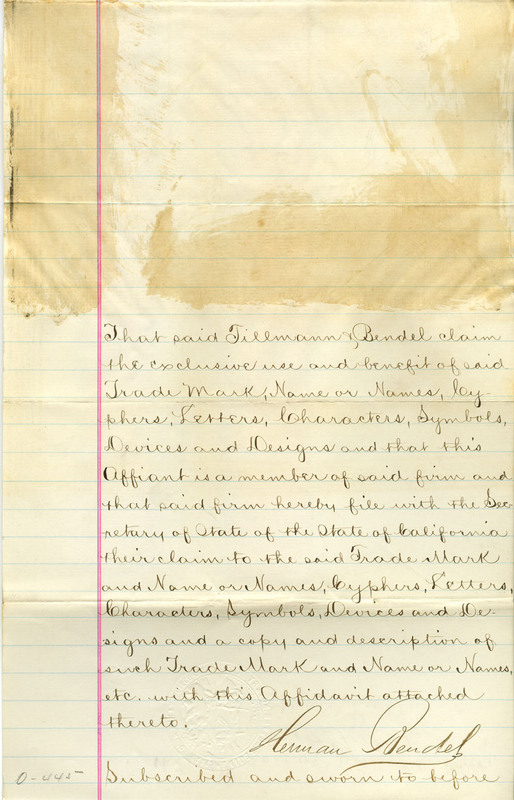 That said Tillmann & Bendel claim
the exclusive use and benefit of said
Trade Mark, Name or Names, Cy-
phers, Letters, Characters, Symbols,
Devices and Designs and that this
Affiant is a member of said firm and
that said firm hereby file with the Sec-
retary of State of the State of California
their claim to the said Trade Mark
and Name or Names, Cyphers, Letters,
Characters, Symbols, Devices and De-
signs and a copy and description of
such Trade Mark and Name or Names,
etc. with this Affidavit attached
thereto.
Herman Bendel
Subscribed and sworn to before
0-445